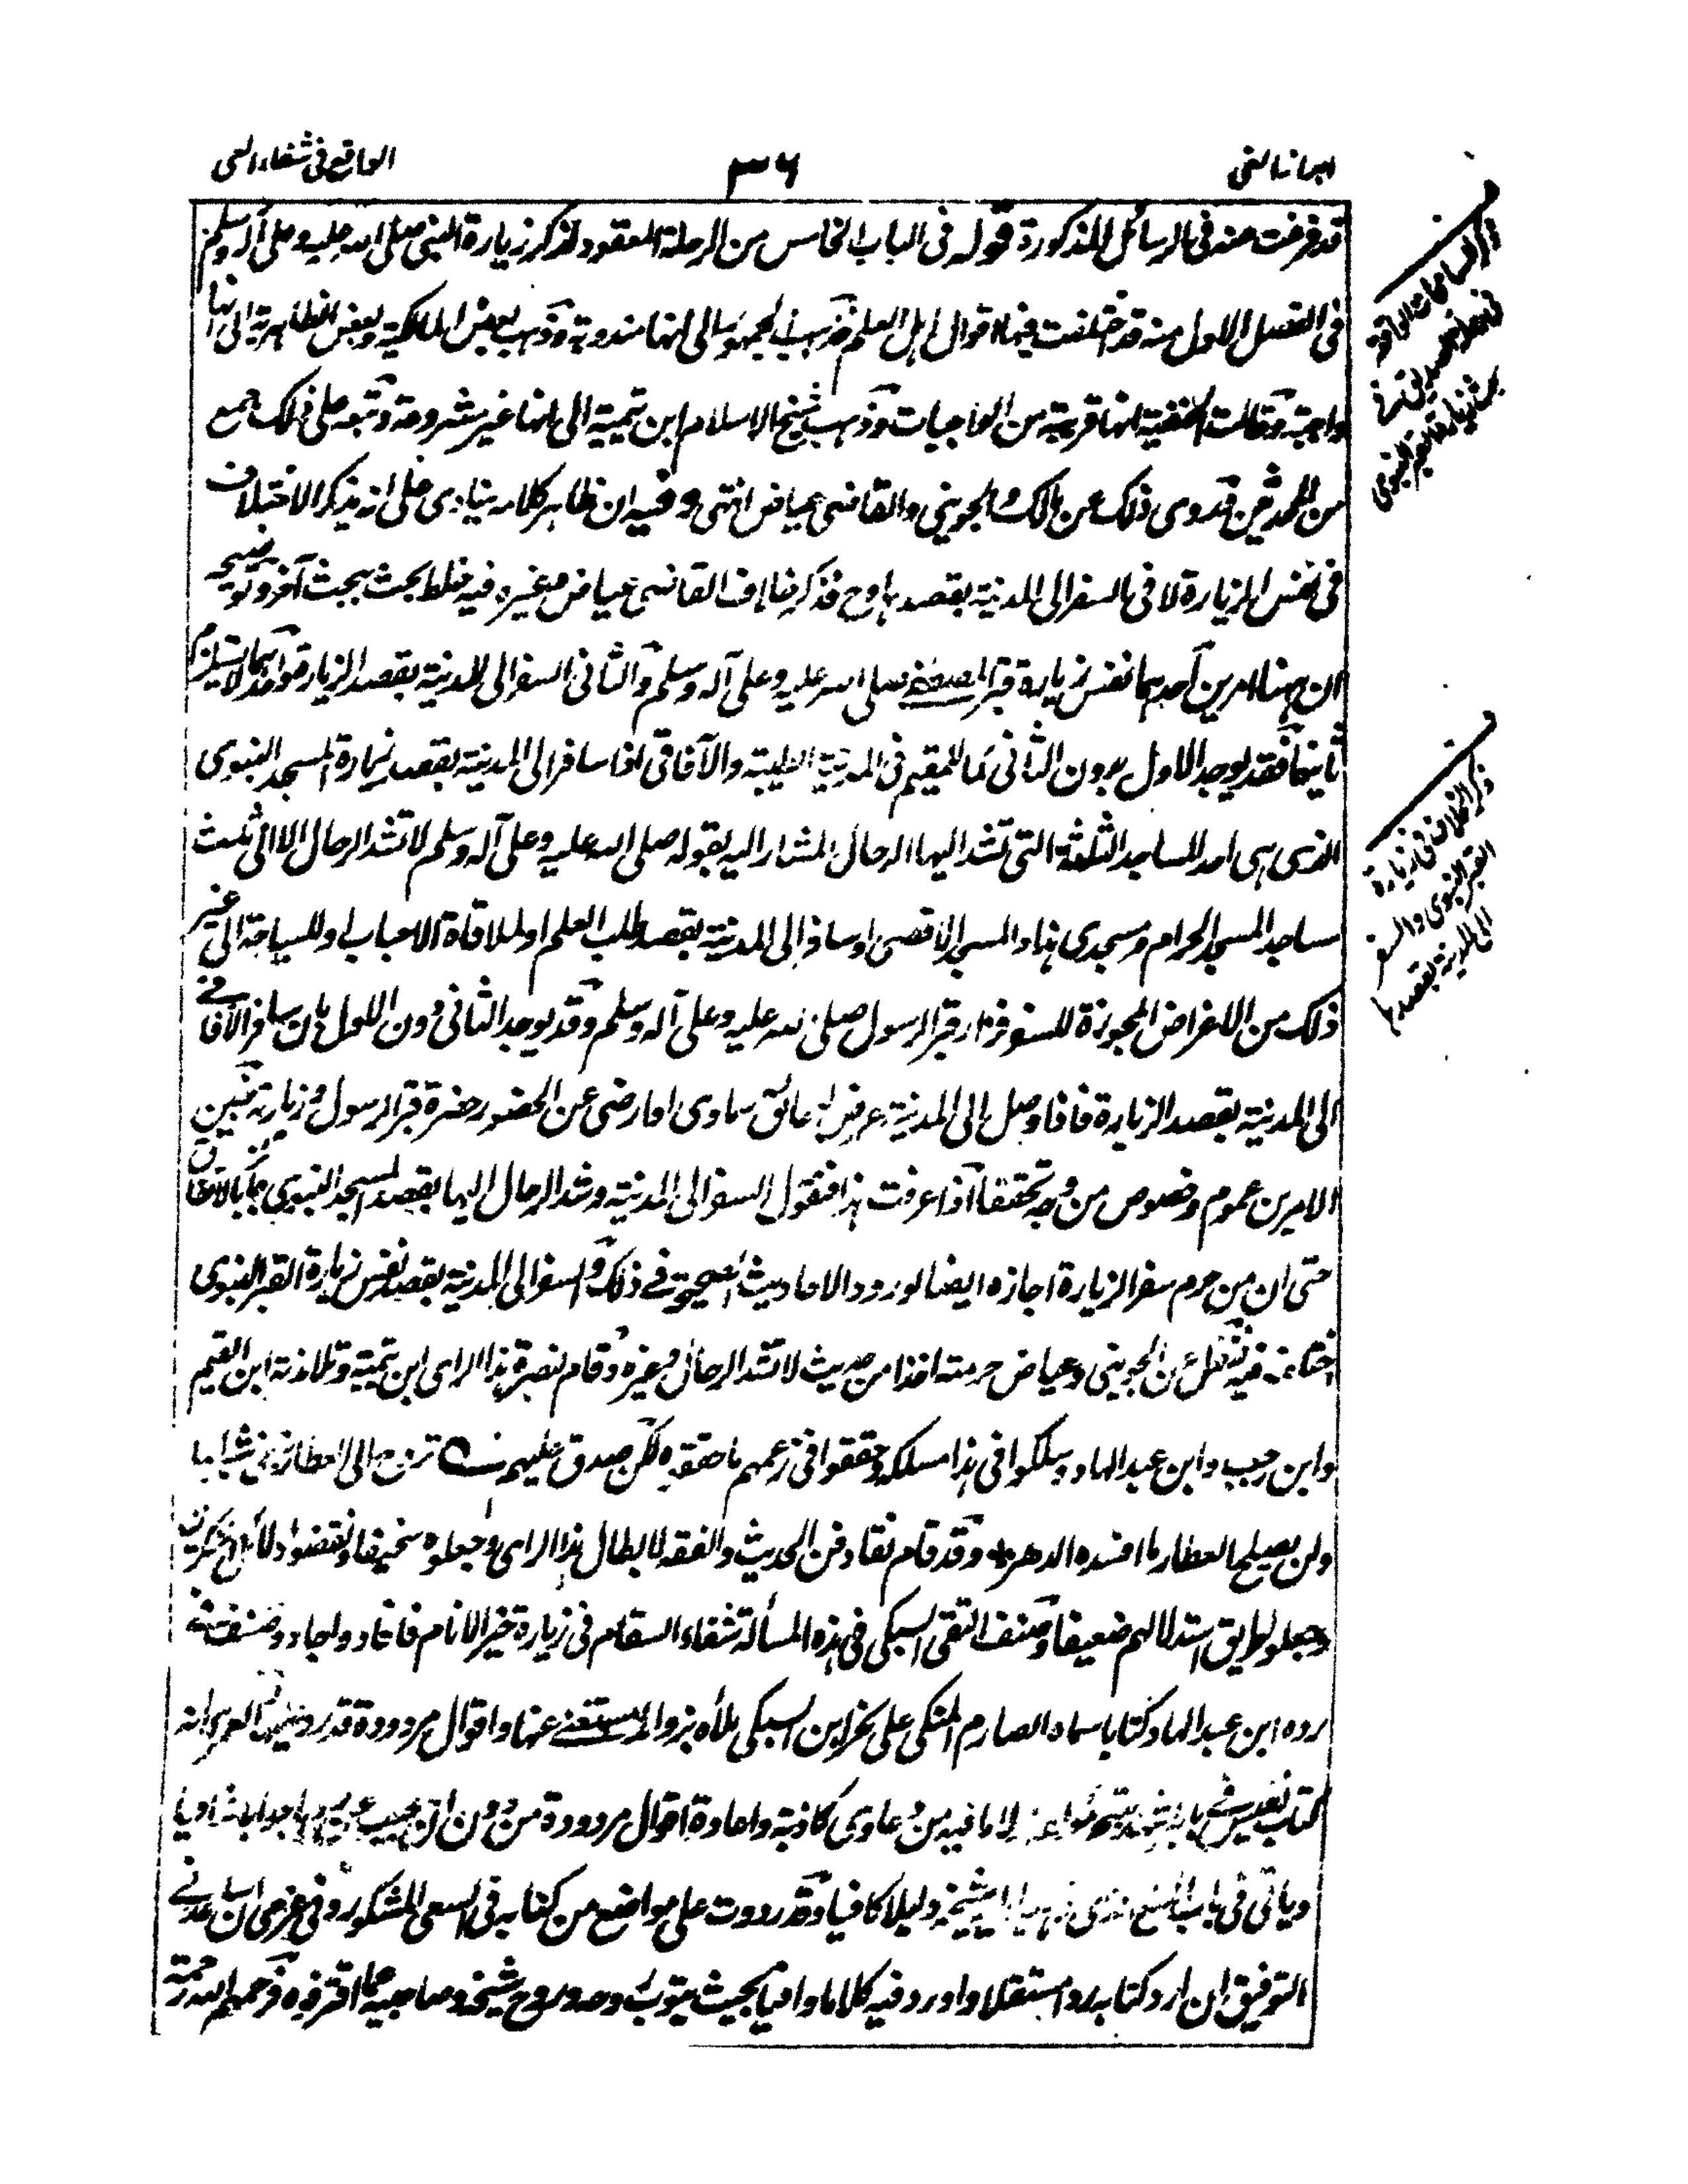 ابراز الغي
٣٦
الواقع في شفاء العي
قد فرغت عنه في الرسائل المذكورة قوله في الباب الخامس من الرحلة المعقود لذكر زيارة النبي صلى الله عليه وعلى آله وسلم
في الفصل الاول منه قد اختلفت فيها اقوال اهل العلم فذهب الجمهور الى انها مندوبة وذهب بعض المالكية وبعض الظاهرية الى انها
واجبة وقالت الحنفية انها قريبة من الواجبات وذهب شيخ الاسلام ابن تيمية الى انها غير مشروعة وتبعه على ذلك جمع
من المحدثين وروى ذلك عن مالك والجويني والقاضي عياض انتهى وفيه ان ظاهر كلامه ينادى على انه يذكر الاختلاف
في نفس الزيارة لا في السفر الى المدينة بقصدها وح فذكر خلاف القاضي عياض وغيره فيه خلط بحث ببحث آخر وتوضيحه
ان ههنا امرين احدهما نفس زيارة قبر المصطفى صلى الله عليه وعلى آله وسلم والثاني السفر الى المدينة بقصد الزيارة واحدهما لا يستلزم
ثانيهما فقد يوجد الاول بدون الثاني كما للمقيم في المدينة الطيبة والآفاقي اذا سافر الى المدينة بقصد زيارة المسجد النبوي
الذي هي احد المساجد الثلثة التي تشد اليها الرحال المشار اليه بقوله صلى الله عليه وعلى آله وسلم لا تشد الرحال الا الى ثلث
مساجد المسجد الحرام ومسجدي هذا والمسجد الاقصى او سافر الى المدينة بقصد طلب العلم او لملاقاة الاحباب او للسياحة الى غير
ذلك من الاغراض المجوزة للسفر فزار قبر الرسول صلى الله عليه وعلى آله وسلم وقد يوجد الثاني دون الاول بان سافر الآفاقي
الى المدينة بقصد الزيارة فاذا وصل الى المدينة عرض له عائق سماوى او ارضى عن الحضور حضرة قبر الرسول وزيارته فبين
الامرين عموم وخصوص من وجه تحققا اذا عرفت هذا فنقول السفر الى المدينة وشد الرحال اليها بقصد المسجد النبوي جائز بالاتفاق
حتى ان من حرم سفر الزيارة اجازه ايضا لورود الاحاديث الصحيحة في ذلك والسفر الى المدينة بقصد نفس زيارة القبر النبوي
اختلف فيه فنقل عن الجويني وعياض حرمته اخذا من حديث لا تشد الرحال وغيره وقام بنصرة هذا الراى ابن تيمية وتلامذته ابن القيم
وابن رجب وابن عبد الهاد وسلكوا في هذا مسلكه وحققوا في زعمهم ما حققه ولكن صدق عليهم تروح الى العطار تبغى شبابها
ولن يصلح العطار ما افسده الدهر وقد قام نقاد فن الحديث والفقه لابطال هذا الراى وجعلوه سخيفا ونقضوا دلائل
وجعلوا طريق استدلالهم ضعيفا وصنف التقي السبكي في هذه المسألة شفاء السقام في زيارة خير الانام فافاد واجاد وصنف في
رده ابن عبد الهاد كتابا سماه الصارم المنكي على نحر ابن السبكي ملأه بزوائد يستغنى عنها واقوال مردودة قد رد عليها لعمري انه
لكتاب نفيس في بابه لولا ما فيه من دعاوى كاذبة واعادة اقوال مردودة من دون ان يجيب عن
وياتى في باب المنع الذي ذهب اليه شيخه دليلا كافيا وقد رددت على مواضع من كتابه في السعى المشكور وفي عزمى ان ساعدنى
التوفيق ان ارد كتابه ردا مستقلا واورد فيه كلاما وافيا بحيث يتوب وروح شيخه وصاحبيه مما اقترفوه فرحمهم الله رحمة
ذكر الخلاف في زيارة
القبر النبوي والسفر
الى المدينة بقصدها